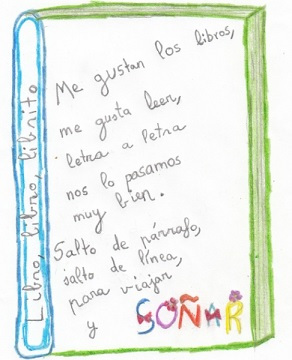 Libro, libro, librito
Me gustan los libros,
me gusta leer,
letra a letra
nos lo pasamos
muy bien.
Salto de párrafo,
salto de línea,
para viajar
y SOÑAR